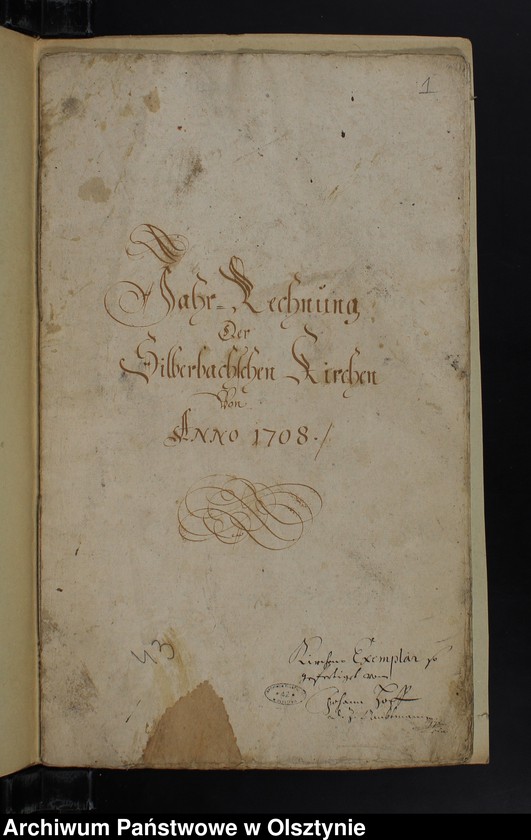 1
Jahr=Rechnung
Der
Silberbachschen Kirchen
Von
ANNO 1708./
43
Kirchen Exemplar so
gefertiget von
Johann
Archiwum Państwowe w Olsztynie